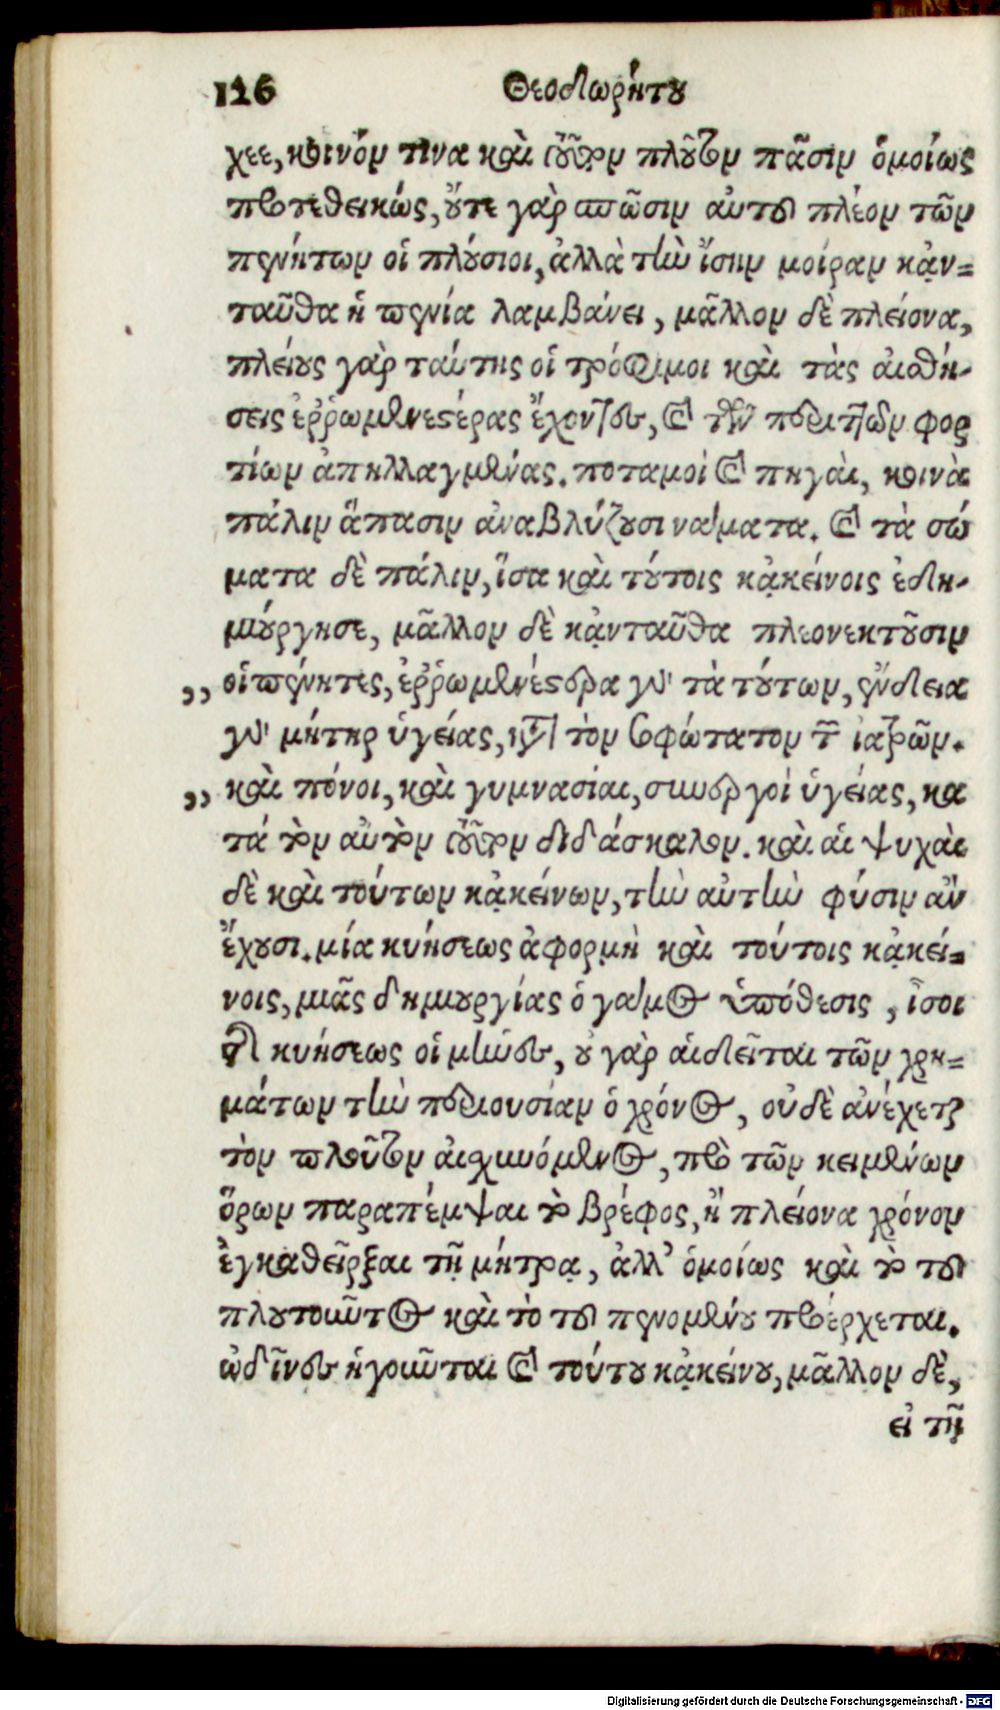 126 Θεοδωρήτου
χεε, κοινόν τινα καὶ τοῦτον πλοῦτον πᾶσιν ὁμοίως
προτεθεικώς, οὔτε γὰρ σπῶσιν αὐτοῦ πλέον τῶν
πενήτων οἱ πλούσιοι, ἀλλὰ τὴν ἴσην μοίραν κᾀν=
ταῦθα ἡ πενία λαμβάνει, μᾶλλον δὲ πλείονα,
πλείους γὰρ ταύτης οἱ τρόφιμοι καὶ τὰς αἰσθή-
σεις ἐῤῥωμενεστέρας ἔχοντες, καὶ τῶν περιττῶν φορ
τίων ἀπηλλαγμένας. ποταμοὶ καὶ πηγαὶ, κοινὰ
πάλιν ἅπασιν ἀναβλύζουσι νάματα. καὶ τὰ σώ
ματα δὲ πάλιν, ἴσα καὶ τούτοις κᾀκείνοις ἐδη-
μιούργησε, μᾶλλον δὲ κᾀνταῦθα πλεονεκτοῦσιν
,, οἱ πένητες, ἐῤῥωμενέστερα γὰρ τὰ τούτων, ἔνδεια
γὰρ μήτηρ ὑγείας, κατὰ τὸν σοφώτατον τῶν ἰατρῶν.
,, καὶ πόνοι, καὶ γυμνασίαι, συνεργοὶ ὑγείας, κα
τά τὸν αὐτὸν τοῦτον διδάσκαλον. καὶ αἱ ψυχαὶ
δὲ καὶ τούτων κᾀκείνων, τὴν αὐτὴν φύσιν ἂν
ἔχουσι. μία κυήσεως ἀφορμὴ καὶ τούτοις κᾀκεί=
νοις, μιᾶς δημιουργίας ὁ γάμος ὑπόθεσις, ἴσοι
τῆς κυήσεως οἱ μῆνες, οὐ γὰρ αἰδεῖται τῶν χρη=
μάτων τὴν περιουσίαν ὁ χρόνος, οὐδὲ ἀνέχεται
τὸν πλοῦτον αἰσχυνόμενος, πρὸ τῶν κειμένων
ὅρων παραπέμψαι τὸ βρέφος, ἢ πλείονα χρόνον
ἐγκαθεῖρξαι τῇ μήτρᾳ, ἀλλ' ὁμοίως καὶ τὸ τοῦ
πλουτοῦντος καὶ τὸ τοῦ πενομένου προέρχεται.
ὠδῖνες ἡγοῦνται καὶ τούτου κᾀκείνου, μᾶλλον δὲ,
εἰ τῇ
Digitalisierung gefördert durch die Deutsche Forschungsgemeinschaft - DFG